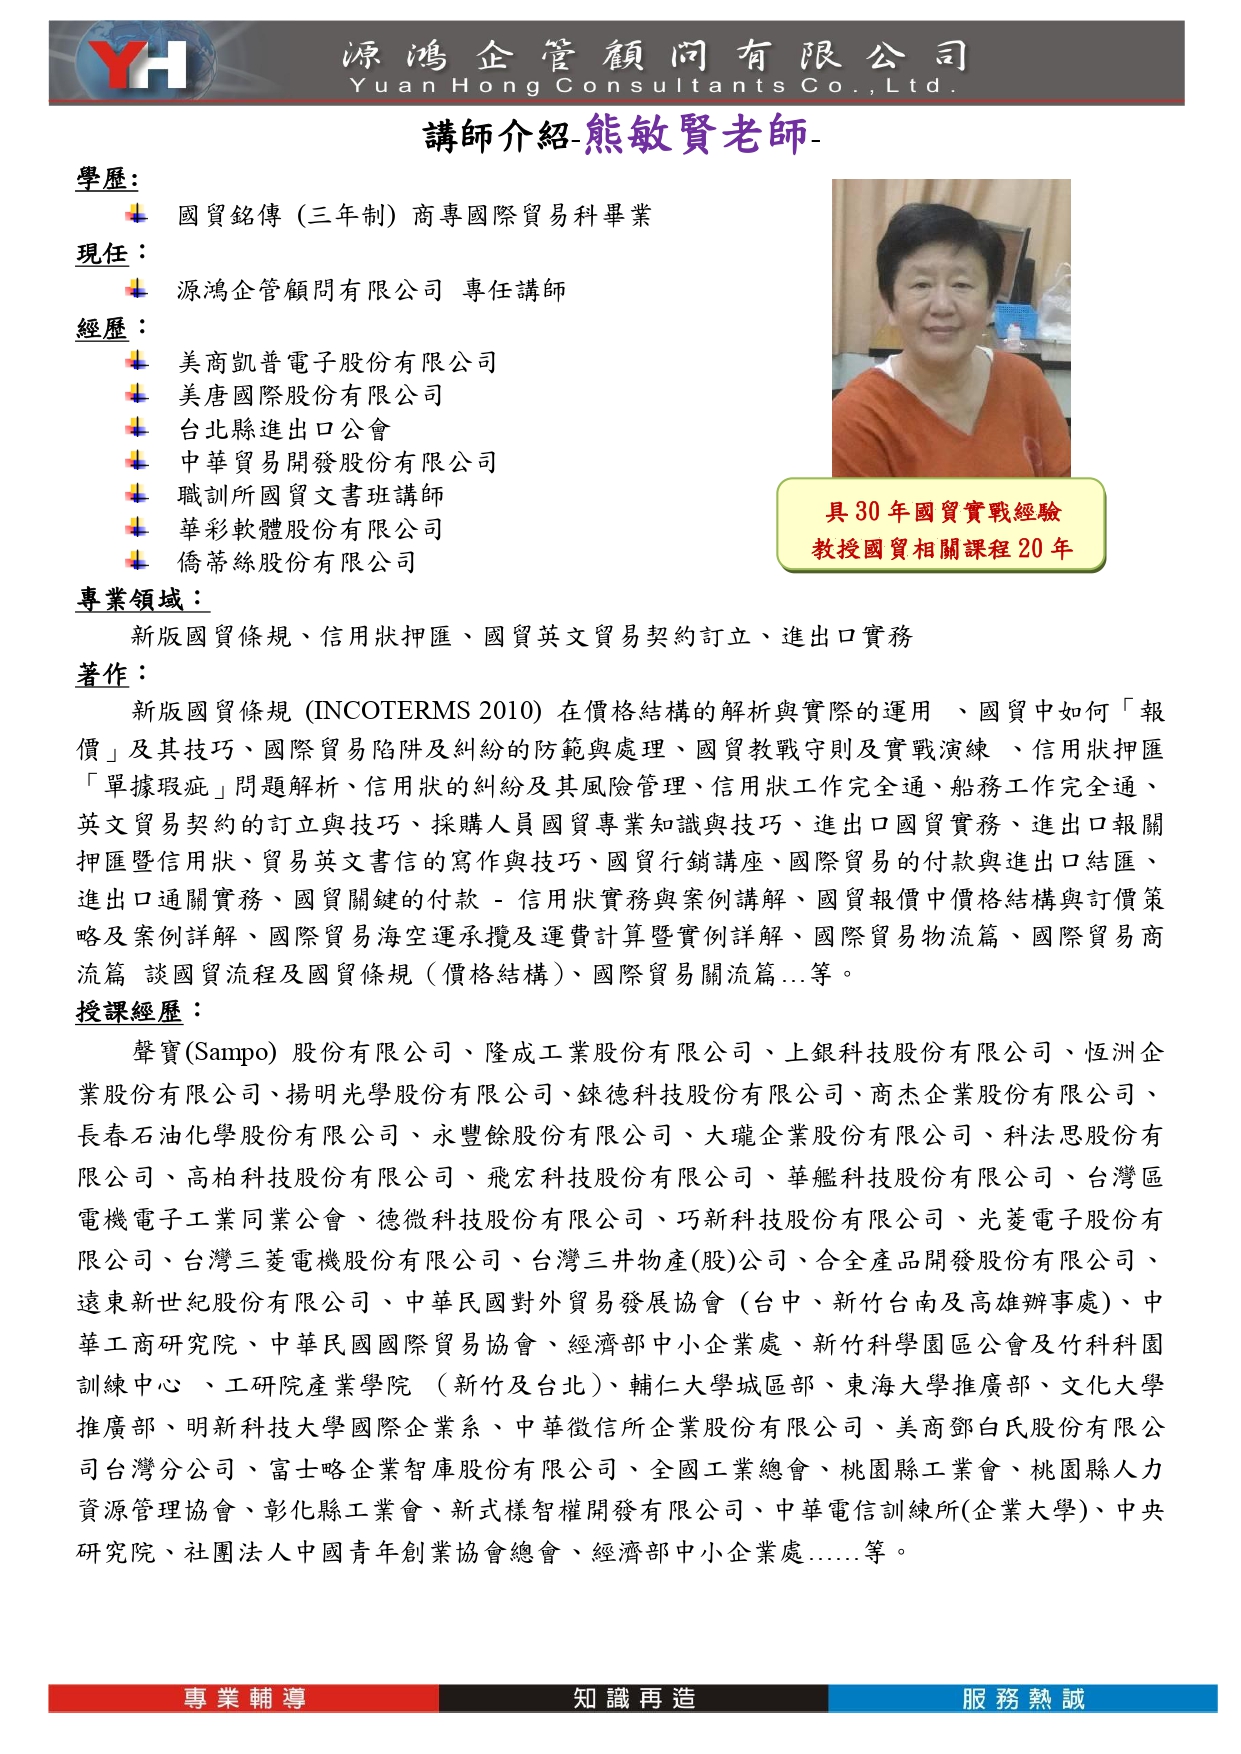 YH
源鴻企管顧問有限公司
Yuan Hong Consultants Co.,Ltd.
講師介紹-熊敏賢老師-
學歷:
國貿銘傳 (三年制) 商專國際貿易科畢業
現任：
源鴻企管顧問有限公司 專任講師
經歷：
美商凱普電子股份有限公司
美唐國際股份有限公司
台北縣進出口公會
中華貿易開發股份有限公司
職訓所國貿文書班講師
華彩軟體股份有限公司
僑蒂絲股份有限公司
具 30 年國貿實戰經驗
教授國貿相關課程 20 年
專業領域：
新版國貿條規、信用狀押匯、國貿英文貿易契約訂立、進出口實務
著作：
新版國貿條規 (INCOTERMS 2010) 在價格結構的解析與實際的運用 、國貿中如何「報
價」及其技巧、國際貿易陷阱及糾紛的防範與處理、國貿教戰守則及實戰演練 、信用狀押匯
「單據瑕疵」問題解析、信用狀的糾紛及其風險管理、信用狀工作完全通、船務工作完全通、
英文貿易契約的訂立與技巧、採購人員國貿專業知識與技巧、進出口國貿實務、進出口報關
押匯暨信用狀、貿易英文書信的寫作與技巧、國貿行銷講座、國際貿易的付款與進出口結匯、
進出口通關實務、國貿關鍵的付款 - 信用狀實務與案例講解、國貿報價中價格結構與訂價策
略及案例詳解、國際貿易海空運承攬及運費計算暨實例詳解、國際貿易物流篇、國際貿易商
流篇 談國貿流程及國貿條規（價格結構）、國際貿易關流篇…等。
授課經歷：
聲寶(Sampo) 股份有限公司、隆成工業股份有限公司、上銀科技股份有限公司、恆洲企
業股份有限公司、揚明光學股份有限公司、錸德科技股份有限公司、商杰企業股份有限公司、
長春石油化學股份有限公司、永豐餘股份有限公司、大瓏企業股份有限公司、科法思股份有
限公司、高柏科技股份有限公司、飛宏科技股份有限公司、華艦科技股份有限公司、台灣區
電機電子工業同業公會、德微科技股份有限公司、巧新科技股份有限公司、光菱電子股份有
限公司、台灣三菱電機股份有限公司、台灣三井物產(股)公司、合全產品開發股份有限公司、
遠東新世紀股份有限公司、中華民國對外貿易發展協會 (台中、新竹台南及高雄辦事處)、中
華工商研究院、中華民國國際貿易協會、經濟部中小企業處、新竹科學園區公會及竹科科園
訓練中心 、工研院產業學院 （新竹及台北）、輔仁大學城區部、東海大學推廣部、文化大學
推廣部、明新科技大學國際企業系、中華徵信所企業股份有限公司、美商鄧白氏股份有限公
司台灣分公司、富士略企業智庫股份有限公司、全國工業總會、桃園縣工業會、桃園縣人力
資源管理協會、彰化縣工業會、新式樣智權開發有限公司、中華電信訓練所(企業大學)、中央
研究院、社團法人中國青年創業協會總會、經濟部中小企業處……等。
專業輔導
知識再造
服務熱誠